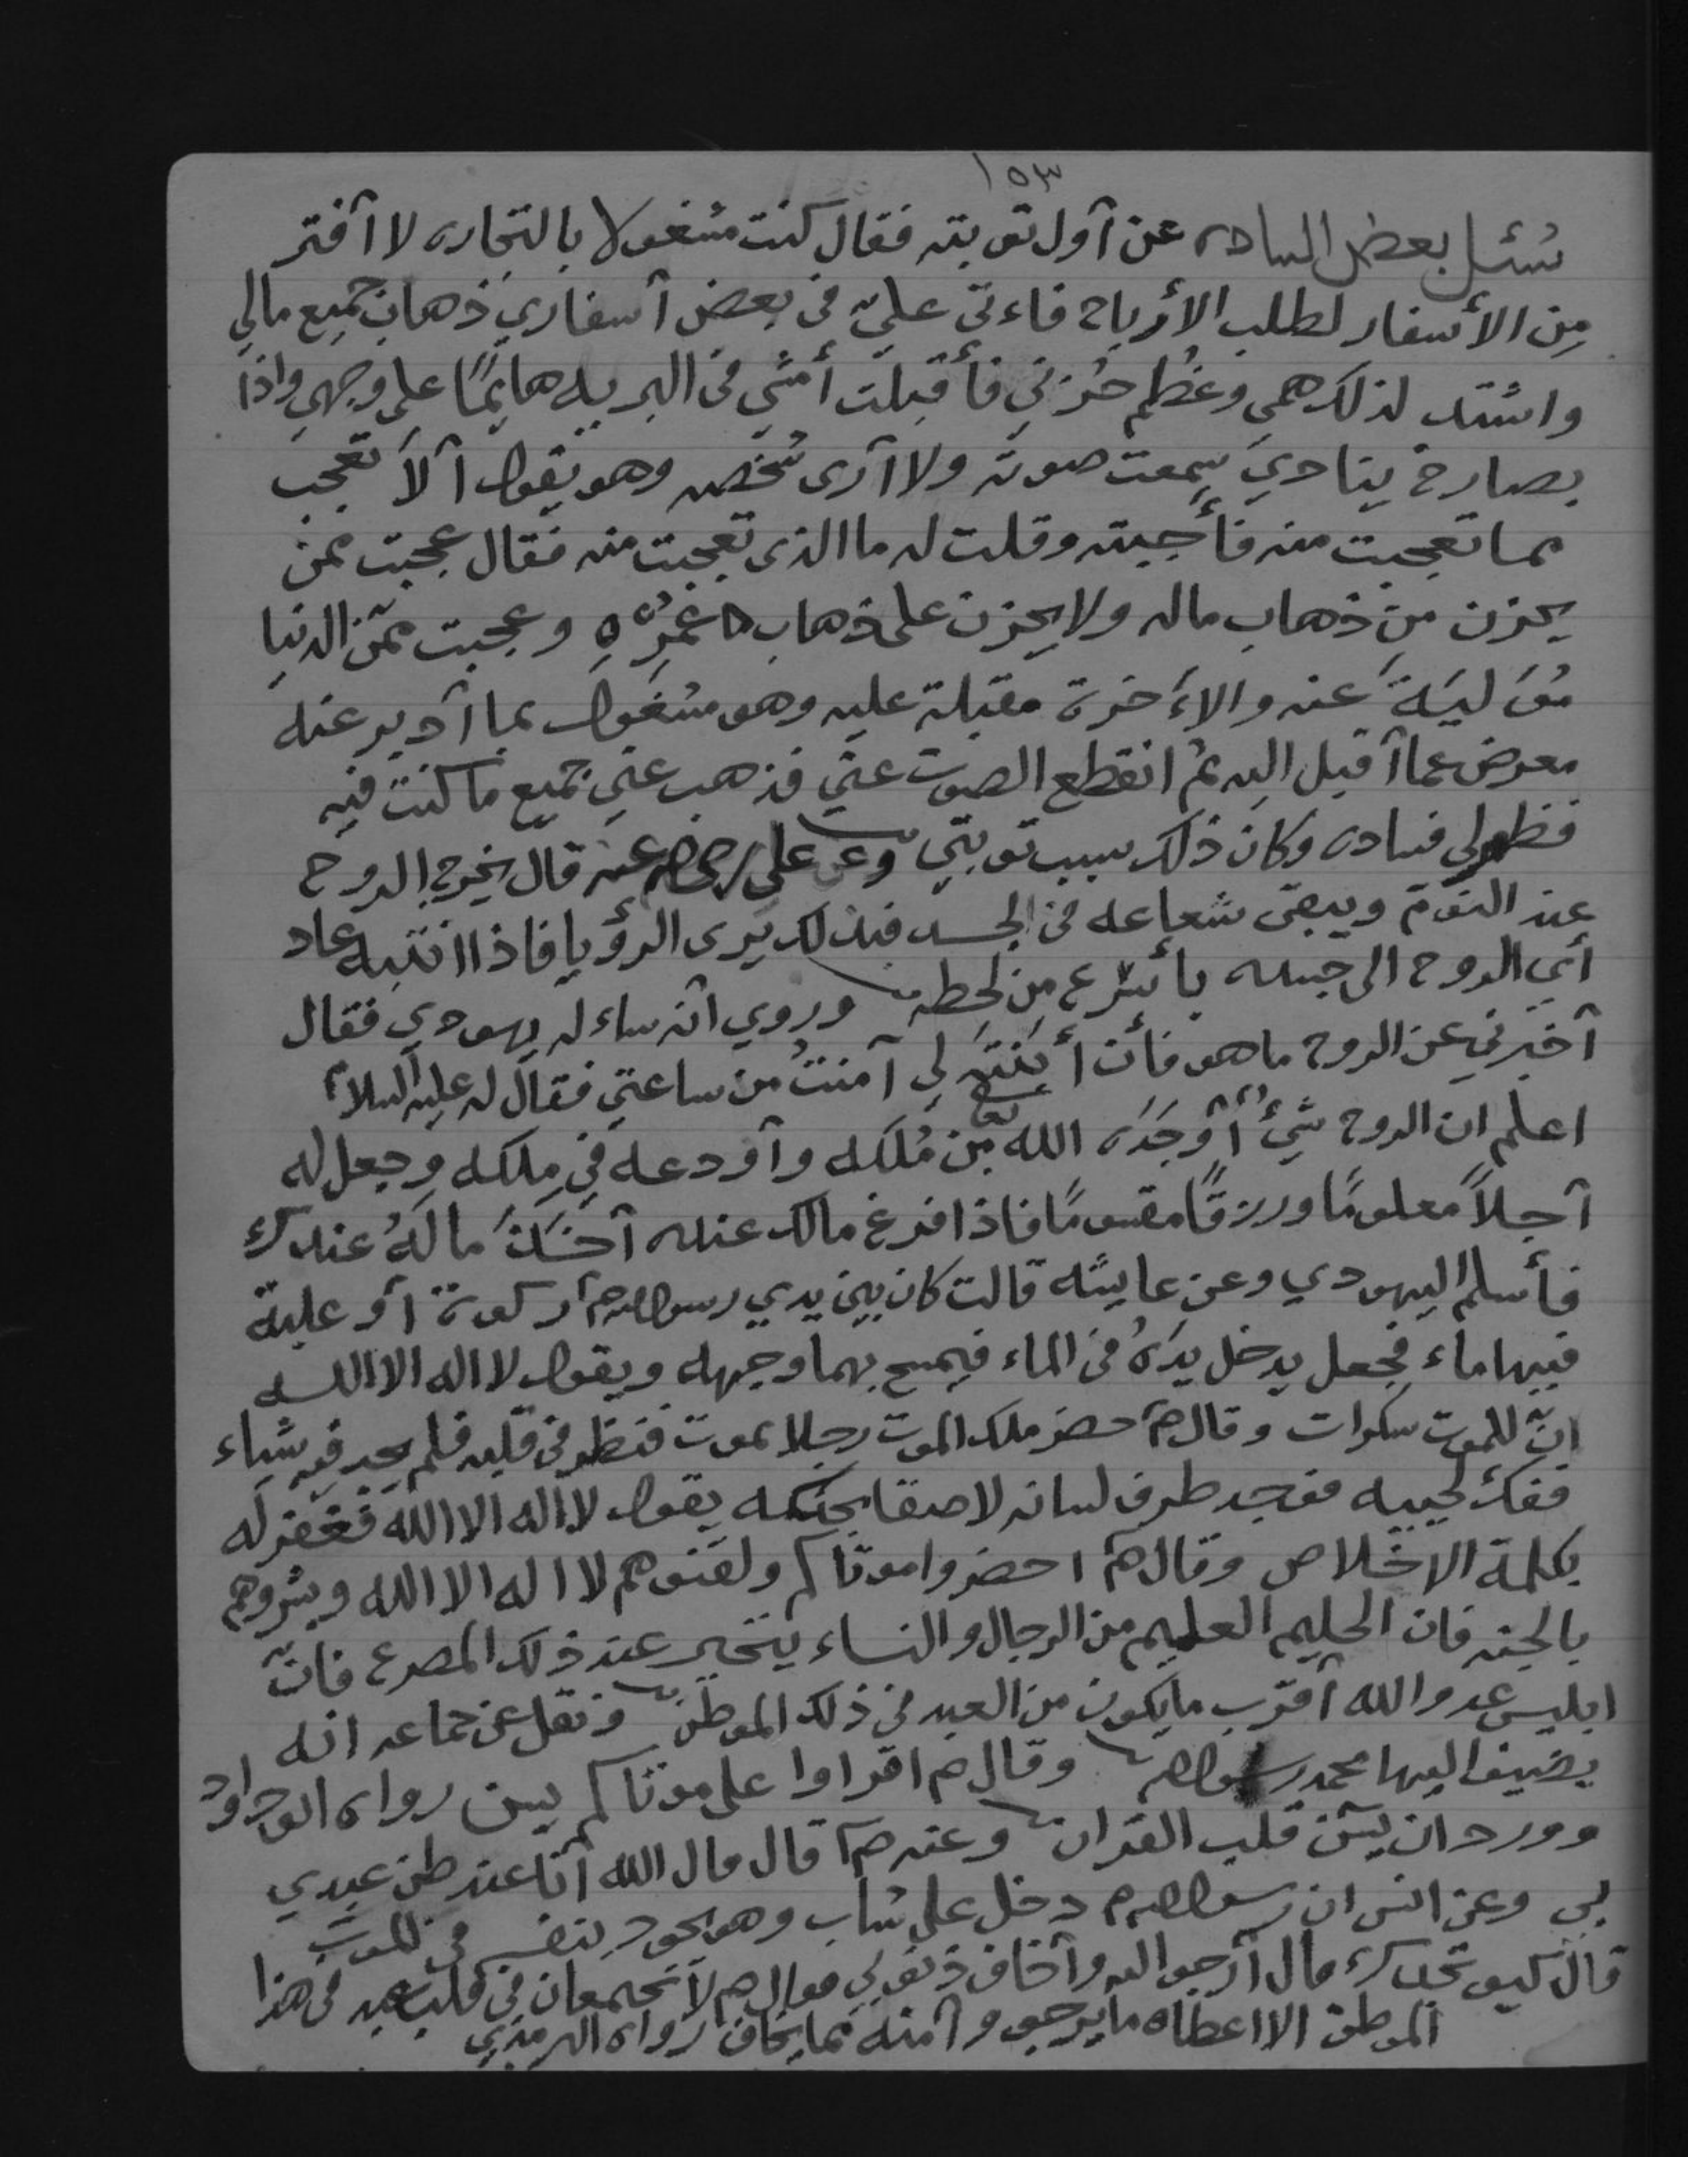 ١٥٣
سُئل بعض الساده عن آول توبته فقال كنت مشغولا بالتجاره لا آفتر
مِن الأسفار لطلب الأرباح فاءتى عليّ فى بعض آسفاري ذهاب جميع مالي
واشتد لذلك همى وعظم حُزني فأقبلت أمشي فى البريه هايمًا على وجهي واذا
بصارخ يناديَ سمعت صوته ولا آرى شخصه وهو يقول آلا تعجب
مما تعجبت منه فأجبته وقلت له ما الذى تعجبت منه فقال عجبت ممن
يحزن مِن ذهاب ماله ولا يحزن على ذهاب عُمرِه وعجبت ممّن الدنيا
مُوَليَة عنه والاءَخرة مقبلة عليه وهو مشغول بما آدبر عنه
معرض عما آقبل اليه ثم انقطع الصوت عنّي فذهب عنيِ جميع ما كنت فيه
فظهر لي فسادى وكان ذلك سبب توبتيِ وعن على رضى الله عنه قال يخرج الروح
عند النوم ويبقى شعاعه فى الجسد فبذلك يَرى الرؤيا فاذا انتبه عاد
أي الروح الى جسده بأسرع مِن لحظه وروي آنه ساءله يهودي فقال
آخبرني عن الروح ما هو فأن أبَنتَه لي آمنتُ من ساعتي فقال له عليه السلام
اعلم ان الروح شيءٌ آوجَدَه الله تعا مِن مُلكه وآودعه في مِلكه وجعل له
آجلاً معلومًا ورزقًا مقسومًا فاذا فرغ مالك عنده آخَذَ مالَهُ عندك
فأسلم اليهودي وعن عايشه قالت كان بين يدي رسول الله صم ركوة آو علبة
فيها ماء فجعل يدخل يدَهُ فى الماء فيمسح بهما وجهه ويقول لا اله الا الله
انّ للموت سكرات وقال صم حضر ملك الموت رجلا يموت فنظر فى قلبه فلم يجد فيه شياء
ففك لحييه فوجد طرف لسانه لاصقا بحنكه يقول لا اله الا الله فغفر له
بكلمة الاخلاص وقال صم احضروا موتاكم ولقنوهم لا اله الا الله وبشروهم
بالجنه فان الحليم العليم من الرجال والنساء يتحير عند ذلك المصرع فانّ
ابليس عدو الله آقرب ما يكون من العبد في ذلك الموطن ونقل عن جماعه انه
يضيف اليها محمد رسول الله وقال صم اقراوا على موتاكم يسن رواه ابو داود
وورد ان يسن قلب القران وعنه صم قال قال الله آنا عند ظن عبدي
بي وعن انس ان رسول الله صم دخل على شاب وهو يجود بنفسه فى الموت
قال كيف تجدك قال آرجو الله وآخاف ذنوبي فقال صم لا تجتمعان في قلب عبد فى هذا
الموطن الا اعطاه ما يرجو وآمنه مما يخاف رواه الترمذي